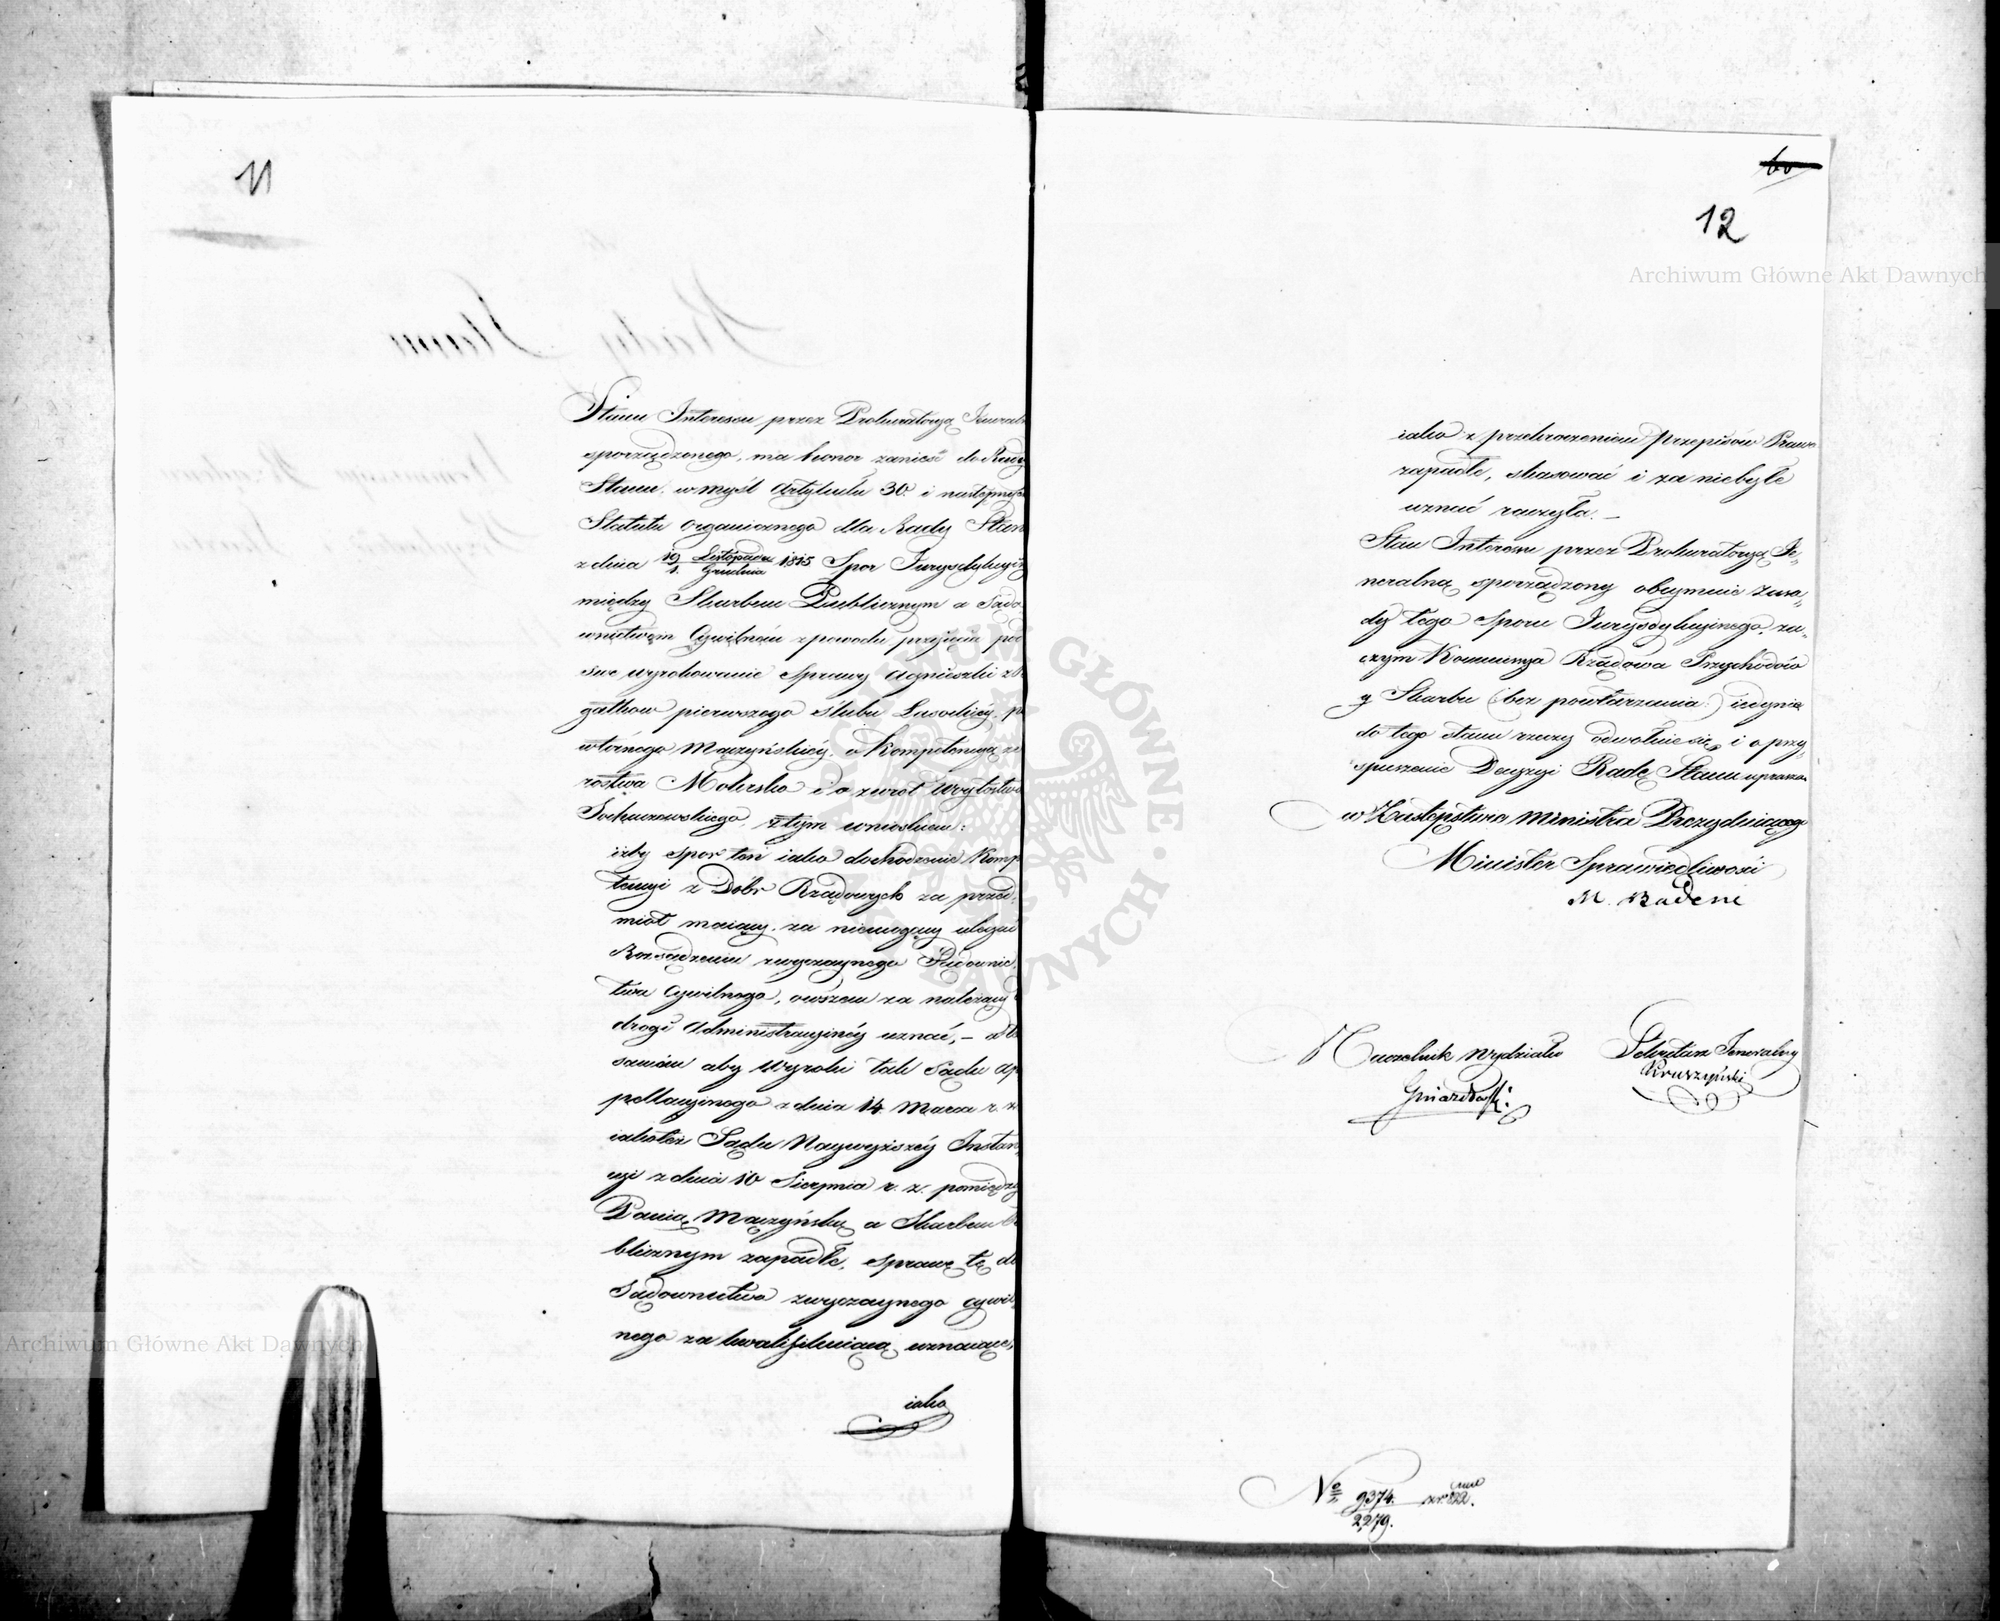 11
Stanu Interesu przez Prokuratoryą Jeneral
sporządzonego, ma honor zanieść do Rady
Stanu, w myśl Artykułu 30. i następnych
Statutu organicznego dla Rady Stanu
z dnia 19 Listopada / 1. Grudnia 1815 Spor Jurysdykcyiny
między Skarbem Publicznym a Sądo
wnictwem Cywilnem z powodu przyięcia pod
swe wyrokowanie Sprawy Agnieszki z
gatkow pierwszego ślubu Lasockiéy, po
wtórnego Mączyńskiéy, o Kompetencyą z
rostwa Mokrsko i o zwrot Woytostwa
Sochaczewskiego, z tym wnioskiem:
iżby spor ten iako dochodzenie Kompe
tencyi z Dóbr Rządowych za przed
miot maiący, za niemogący ulegać
Rozsądzeniu zwyczaynego Sądownic
twa Cywilnego, owszem za należący
drogi Administracyinéy uznać, – a
samém aby Wyroki tak Sądu Ap
pellacyinego z dnia 14 Marca r. z.
iakoteż Sądu Naywyższéy Instan
cyi z dnia 10 Sierpnia r. z. pomiędzy
Panią Mączyńską a Skarbem Pu
blicznym zapadłe, sprawę tę do
Sądownictwa zwyczaynego cywil
nego za kwalifikuiącą uznaiące,
iako
60
12
iako z przekroczeniem przepisów Prawa
zapadłe, skasować i za niebyłe
uznać raczyła. –
Stan Interesu przez Prokuratoryą Je-
neralną sporządzony obeymuie zasa-
dy tego Sporu Jurysdykcyinego, za-
czym Kommissya Rządowa Przychodów
y Skarbu (bez powtarzania) iedynie
do tego stanu rzeczy odwołuie się, i o przy-
spieszenie Decyzyi Radę Stanu uprasza
w Zastępstwie Ministra Prezyduiącego
Minister Sprawiedliwości
M. Badeni
Naczelnik Wydziału
Sekretarz Jeneralny
Kruszyński
No 9374. / 2279.
Archiwum Główne Akt Dawnych
Archiwum Główne Akt Dawnych